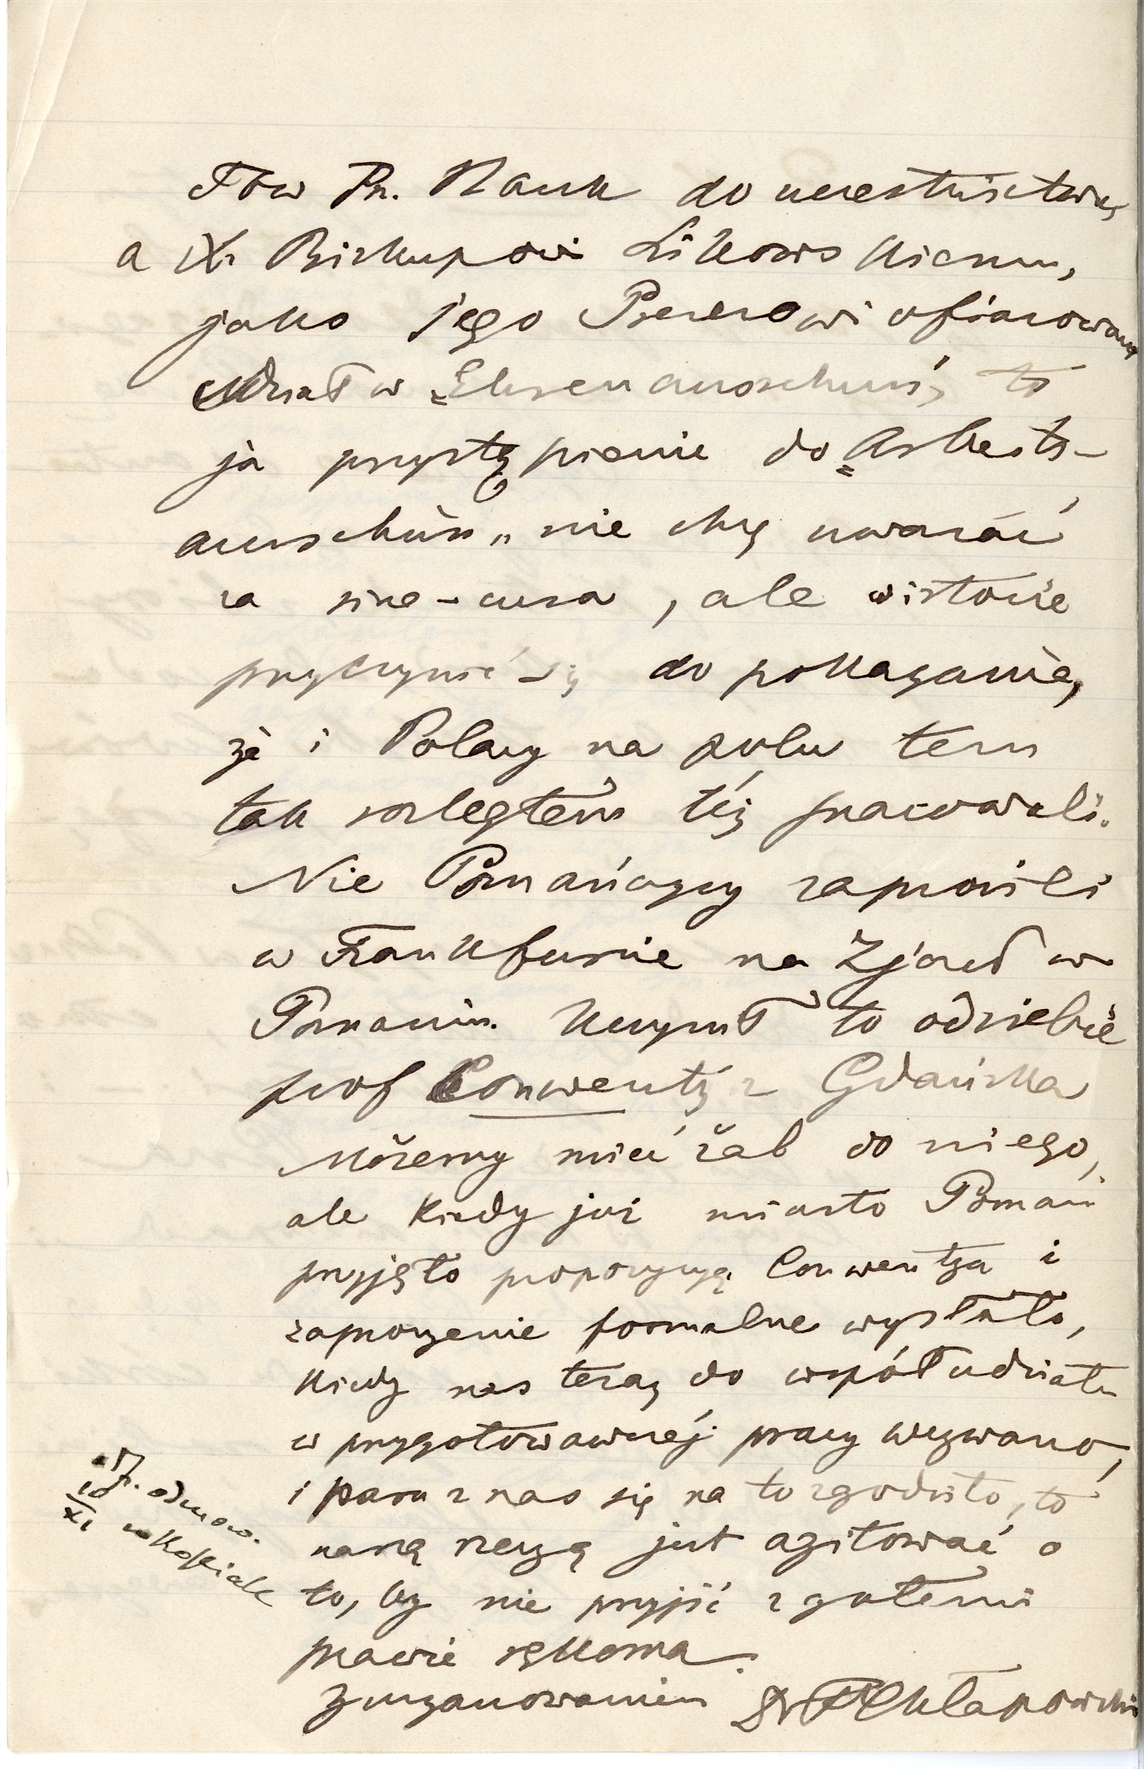 Tow Prz. Nauk do uczestnictwa,
a X. Biskupowi Likowskiemu,
jako jego Prezesowi ofiarowano
udział w „Ehrenausschuss, to
ja przystąpienie do „Arbeits-
ausschuss„ nie chcę uważać
za sine-cura, ale w istocie
przyczynić się do pokazania,
że i Polacy na polu tem
tak rozległem też pracowali.
Nie Poznańczycy zaprosili
w Frankfurcie na Zjazd w
Poznaniu. Uczynił to od siebie
prof Conwentz z Gdańska
Możemy mieć żal do niego,
ale kiedy już miasto Poznań
przyjęło propozycyą Conwentza i
zaproszenie formalne wysłało,
kiedy nas teraz do współudziału
w przygotowawczéj pracy wezwano,
i paru z nas się na to zgodziło, to
naszą rzeczą jest agitować o
to, by nie przyjść z gołemi
prawie rękoma.
Z uszanowaniem Dr F Chłapowski
odmow.
10
XI